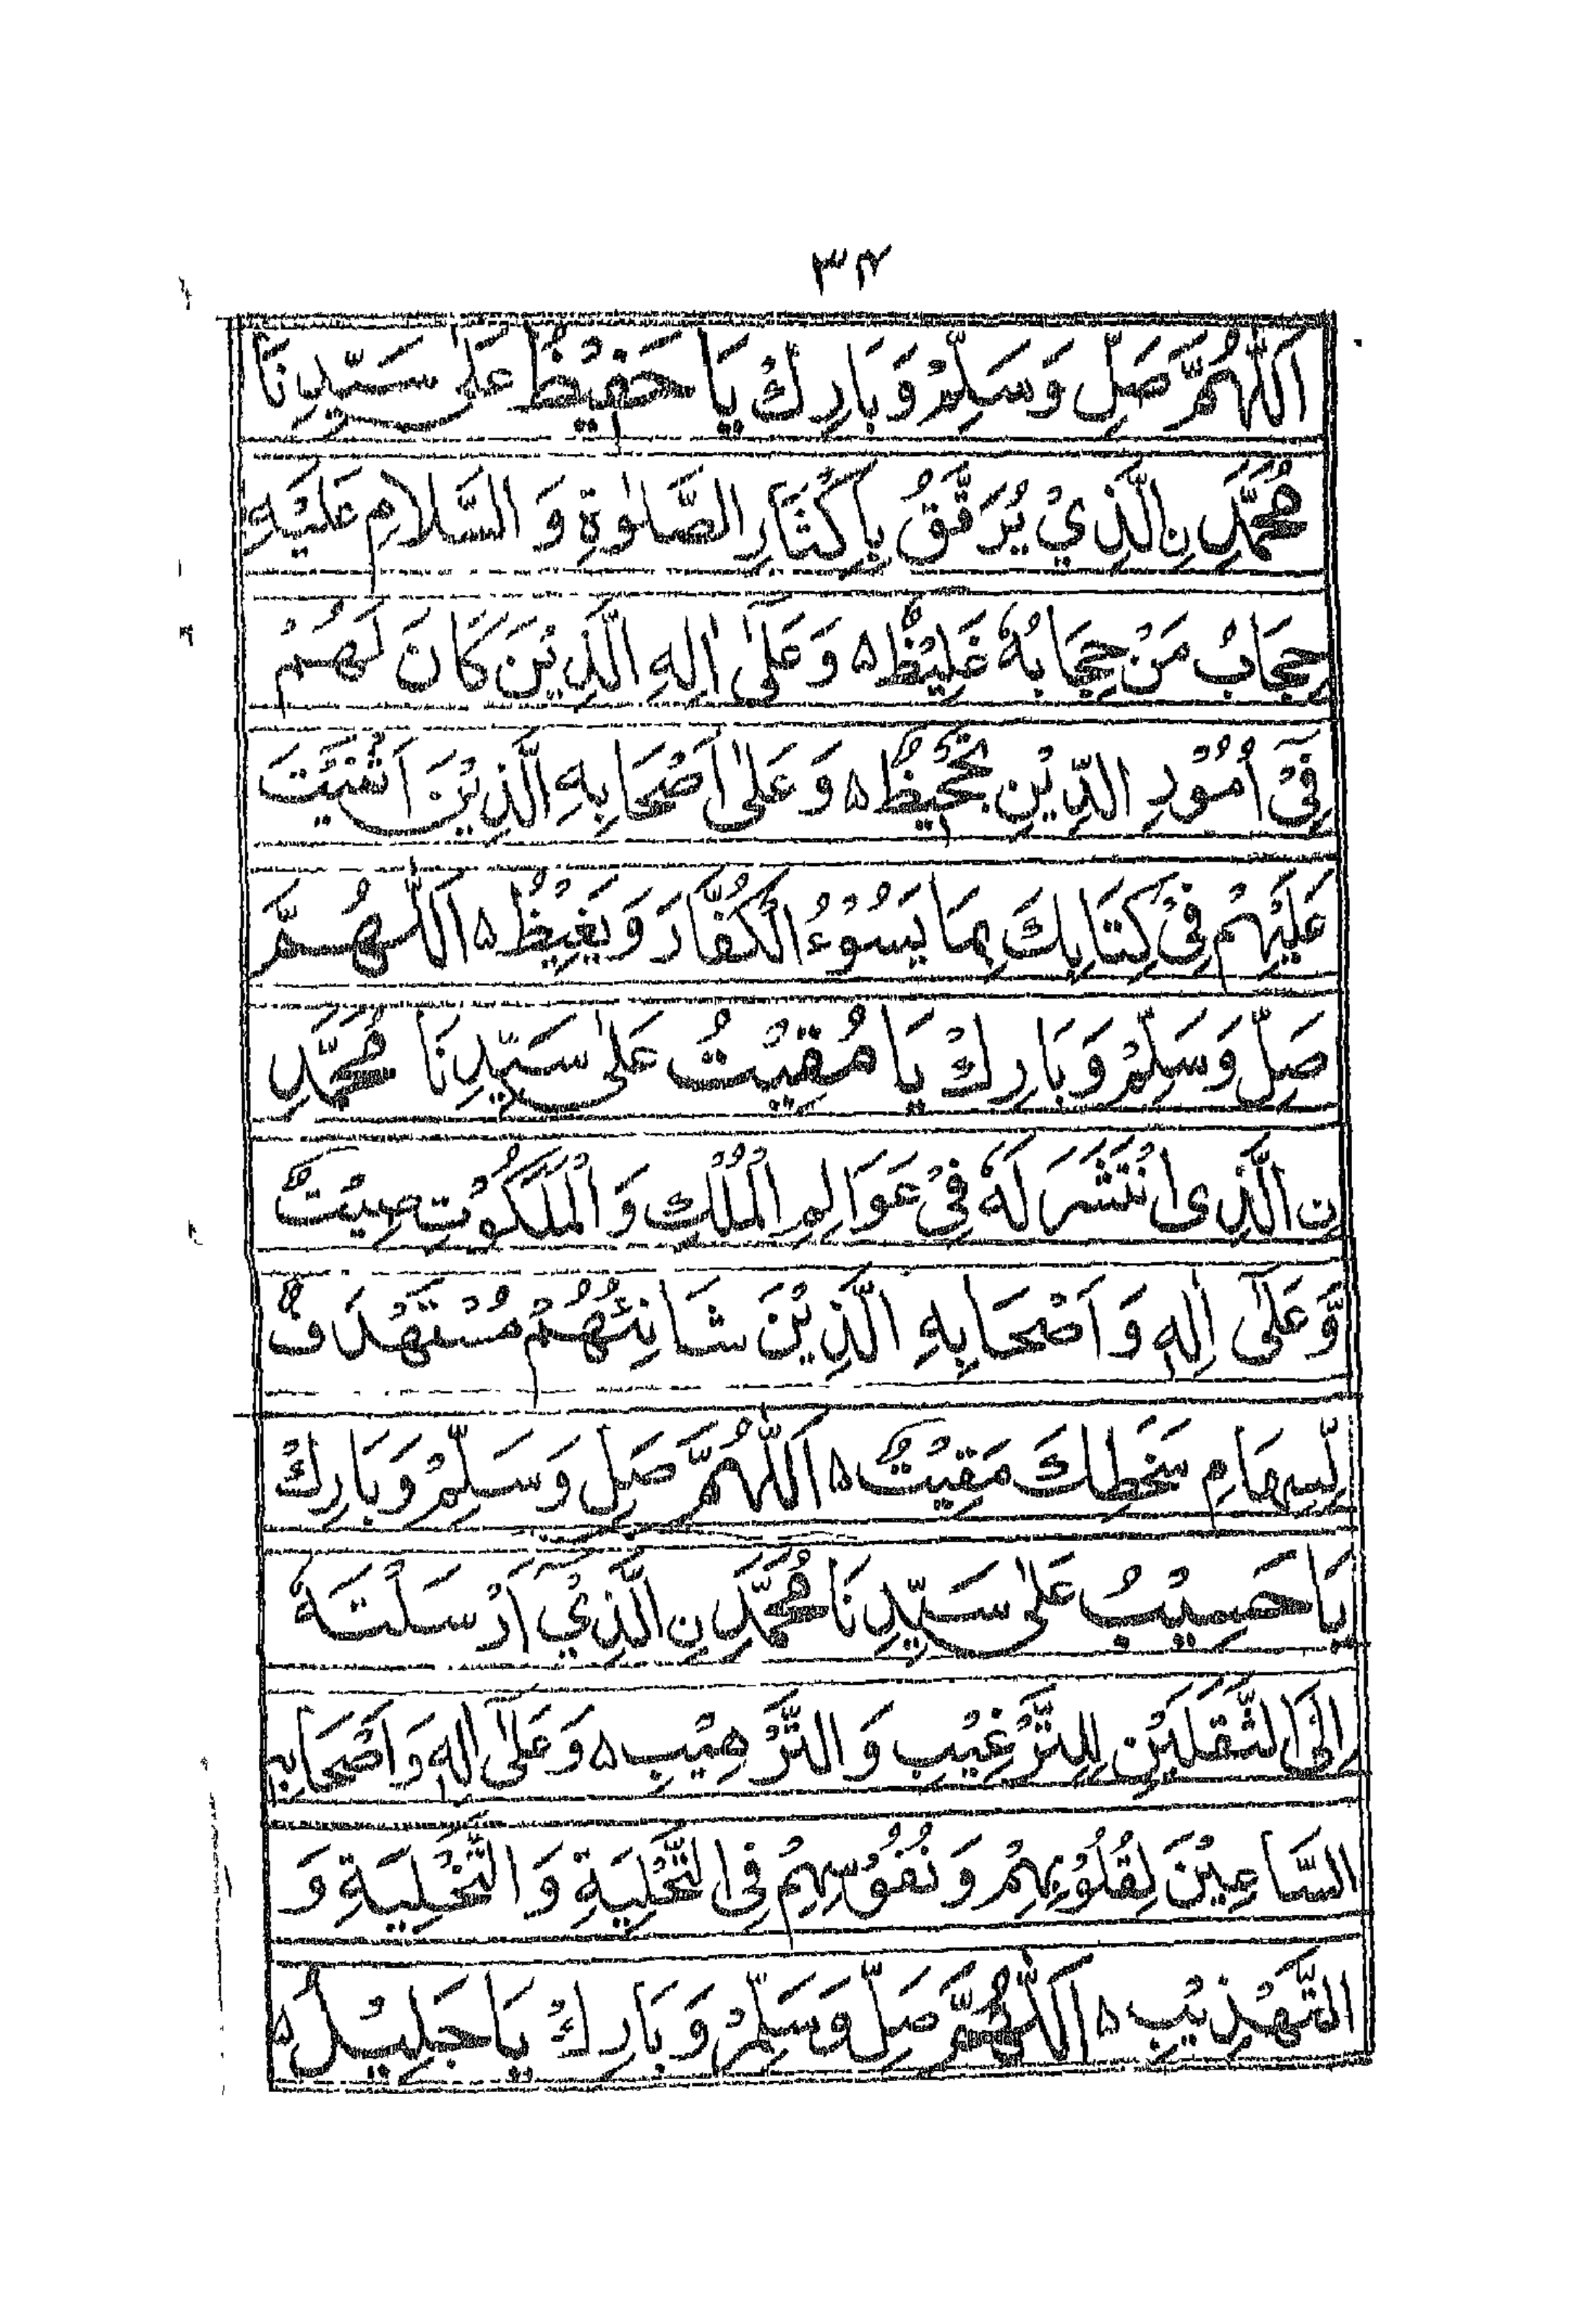 ۳۴
اَللّٰهُمَّ صَلِّ وَسَلِّمْ وَبَارِكْ يَا حَفِيْظُ عَلٰى سَيِّدِنَا
مُحَمَّدِ نِ الَّذِيْ يُرَقَّقُ بِاِكْثَارِ الصَّلٰوةِ وَ السَّلَامِ عَلَيْهِ
حِجَابُ مَنْ حِجَابُهٗ غَلِيْظٌ ۵ وَعَلٰٓى اٰلِهِ الَّذِيْنَ كَانَ لَهُمْ
فِيْٓ اُمُوْرِ الدِّيْنِ تَحْفِيْظٌ ۵ وَعَلٰٓى اَصْحَابِهِ الَّذِيْنَ اَثْنَيْتَ
عَلَيْهِمْ فِيْ كِتَابِكَ بِمَا يَسُوْءُ الْكُفَّارَ وَيَغِيْظُ ۵ اَللّٰهُمَّ
صَلِّ وَسَلِّمْ وَبَارِكْ يَا مُقِيْتُ عَلٰى سَيِّدِنَا مُحَمَّدِ
نِ الَّذِى انْتَشَرَ لَهٗ فِيْ عَوَالِمِ الْمُلْكِ وَالْمَلَكُوْتِ صِيْتٌ
وَّعَلٰٓى اٰلِهٖ وَاَصْحَابِهِ الَّذِيْنَ شَانِئُهُمْ مُسْتَهْدَفٌ
لِّسِهَامِ سَخَطِكَ مَقِيْتٌ ۵ اَللّٰهُمَّ صَلِّ وَسَلِّمْ وَبَارِكْ
يَا حَسِيْبُ عَلٰى سَيِّدِنَا مُحَمَّدِ نِ الَّذِيْٓ اَرْسَلْتَهٗ
اِلَى الثَّقَلَيْنِ لِلتَّرْغِيْبِ وَ التَّرْهِيْبِ ۵ وَعَلٰٓى اٰلِهٖ وَاَصْحَابِهِ
السَّاعِيْنَ لِقُلُوْبِهِمْ وَنُفُوْسِهِمْ فِى التَّحْلِيَةِ وَ التَّخْلِيَةِ وَ
التَّهْذِيْبِ ۵ اَللّٰهُمَّ صَلِّ وَسَلِّمْ وَبَارِكْ يَا جَلِيْلُ ۵